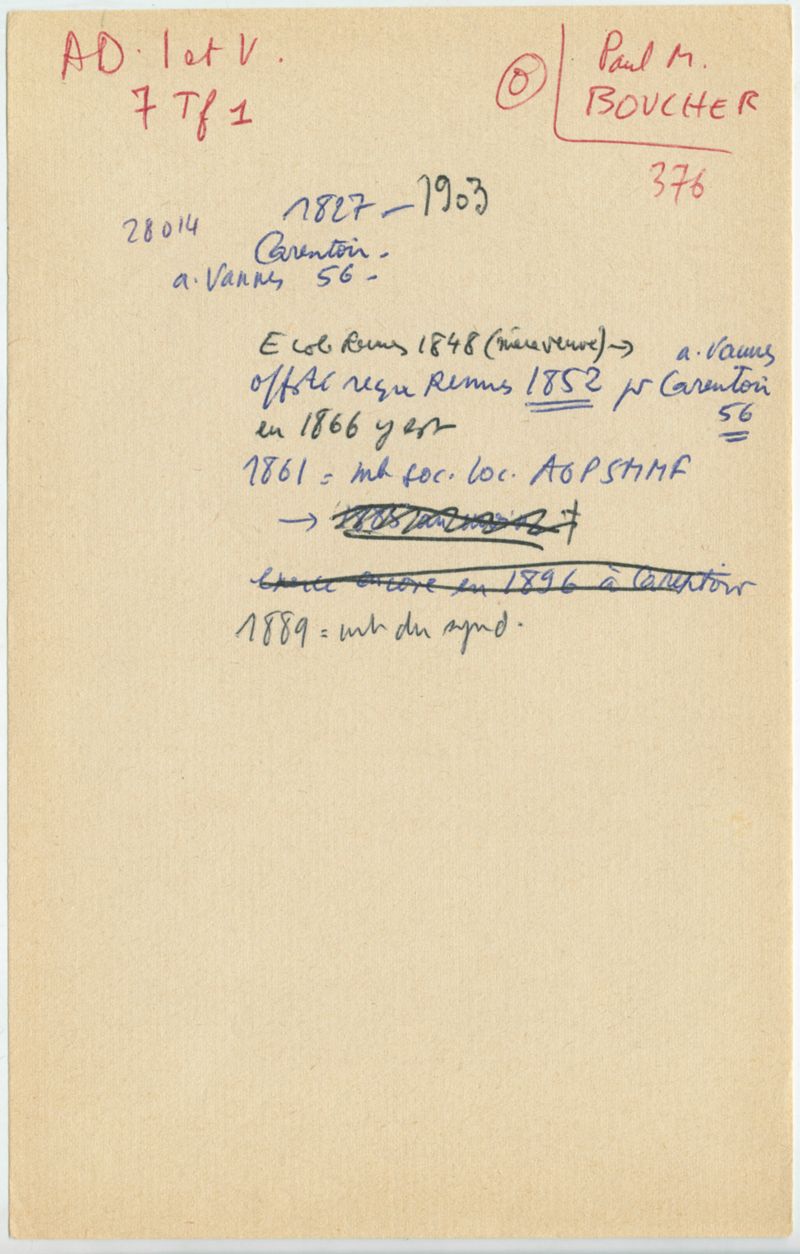 AD. I et V.
7 Tf 1
Paul M.
BOUCHER
376
28014
1827 - 1903
Carentoir -
a. Vannes 56 -
Ecole Rennes 1848 (mère veuve) →
a. Vannes
reçu Rennes 1852 pr Carentoir
56
en 1866 y est
1861 = mb soc. loc. AGPSMMF
→
Exerce encore en 1896 à Carentoir
1889 = mb du synd.